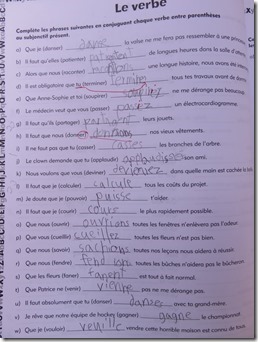 Le verbe
Complète les phrases suivantes en conjuguant chaque verbe entre parenthèses
au subjonctif présent.
a) Que je (danser) danse la valse ne me fera pas ressembler à une
b) Il faut qu'elles (patienter) patientent de longues heures dans la salle d'
c) Alors que nous (raconter) une longue histoire, nous avons été
d) Il est obligatoire que tu (terminer) termines tous tes travaux avant de
e) Que Anne-Sophie et toi (souper) soupiez ne me dérange pas beaucoup.
f) La médecin veut que vous (passer) passiez un électrocardiogramme.
g) Il faut qu'ils (partager) partagent leurs jouets.
h) Il faut que nous (donner) donnions nos vieux vêtements.
i) Il ne faut pas que tu (casser) casses les branches de l'arbre.
j) Le clown demande que tu (applaudir) applaudisses son ami.
k) Nous voulons que vous (deviner) deviniez dans quelle main est cachée la
l) Il faut que je (calculer) calcule tous les coûts du projet.
m) Je doute que je (pouvoir) puisse t'aider.
n) Il faut que je (courir) coure le plus rapidement possible.
o) Que nous (ouvrir) ouvrions toutes les fenêtres n'enlèvera pas l'odeur.
p) Que vous (cueillir) toutes les fleurs n'est pas bien.
q) Que nous (savoir) sachions toutes nos leçons nous aidera à réussir.
r) Que nous (fendre) fendions toutes les bûches n'aidera pas le bûcheron.
s) Que les fleurs (faner) fanent est tout à fait normal.
t) Que Patrice ne (venir) vienne pas ne me dérange pas.
u) Il faut absolument que tu (danser) danses avec ta grand-mère.
v) Je rêve que notre équipe de hockey (gagner) gagne le championnat.
w) Que je (vouloir) veuille vendre cette horrible maison est connu de tous.